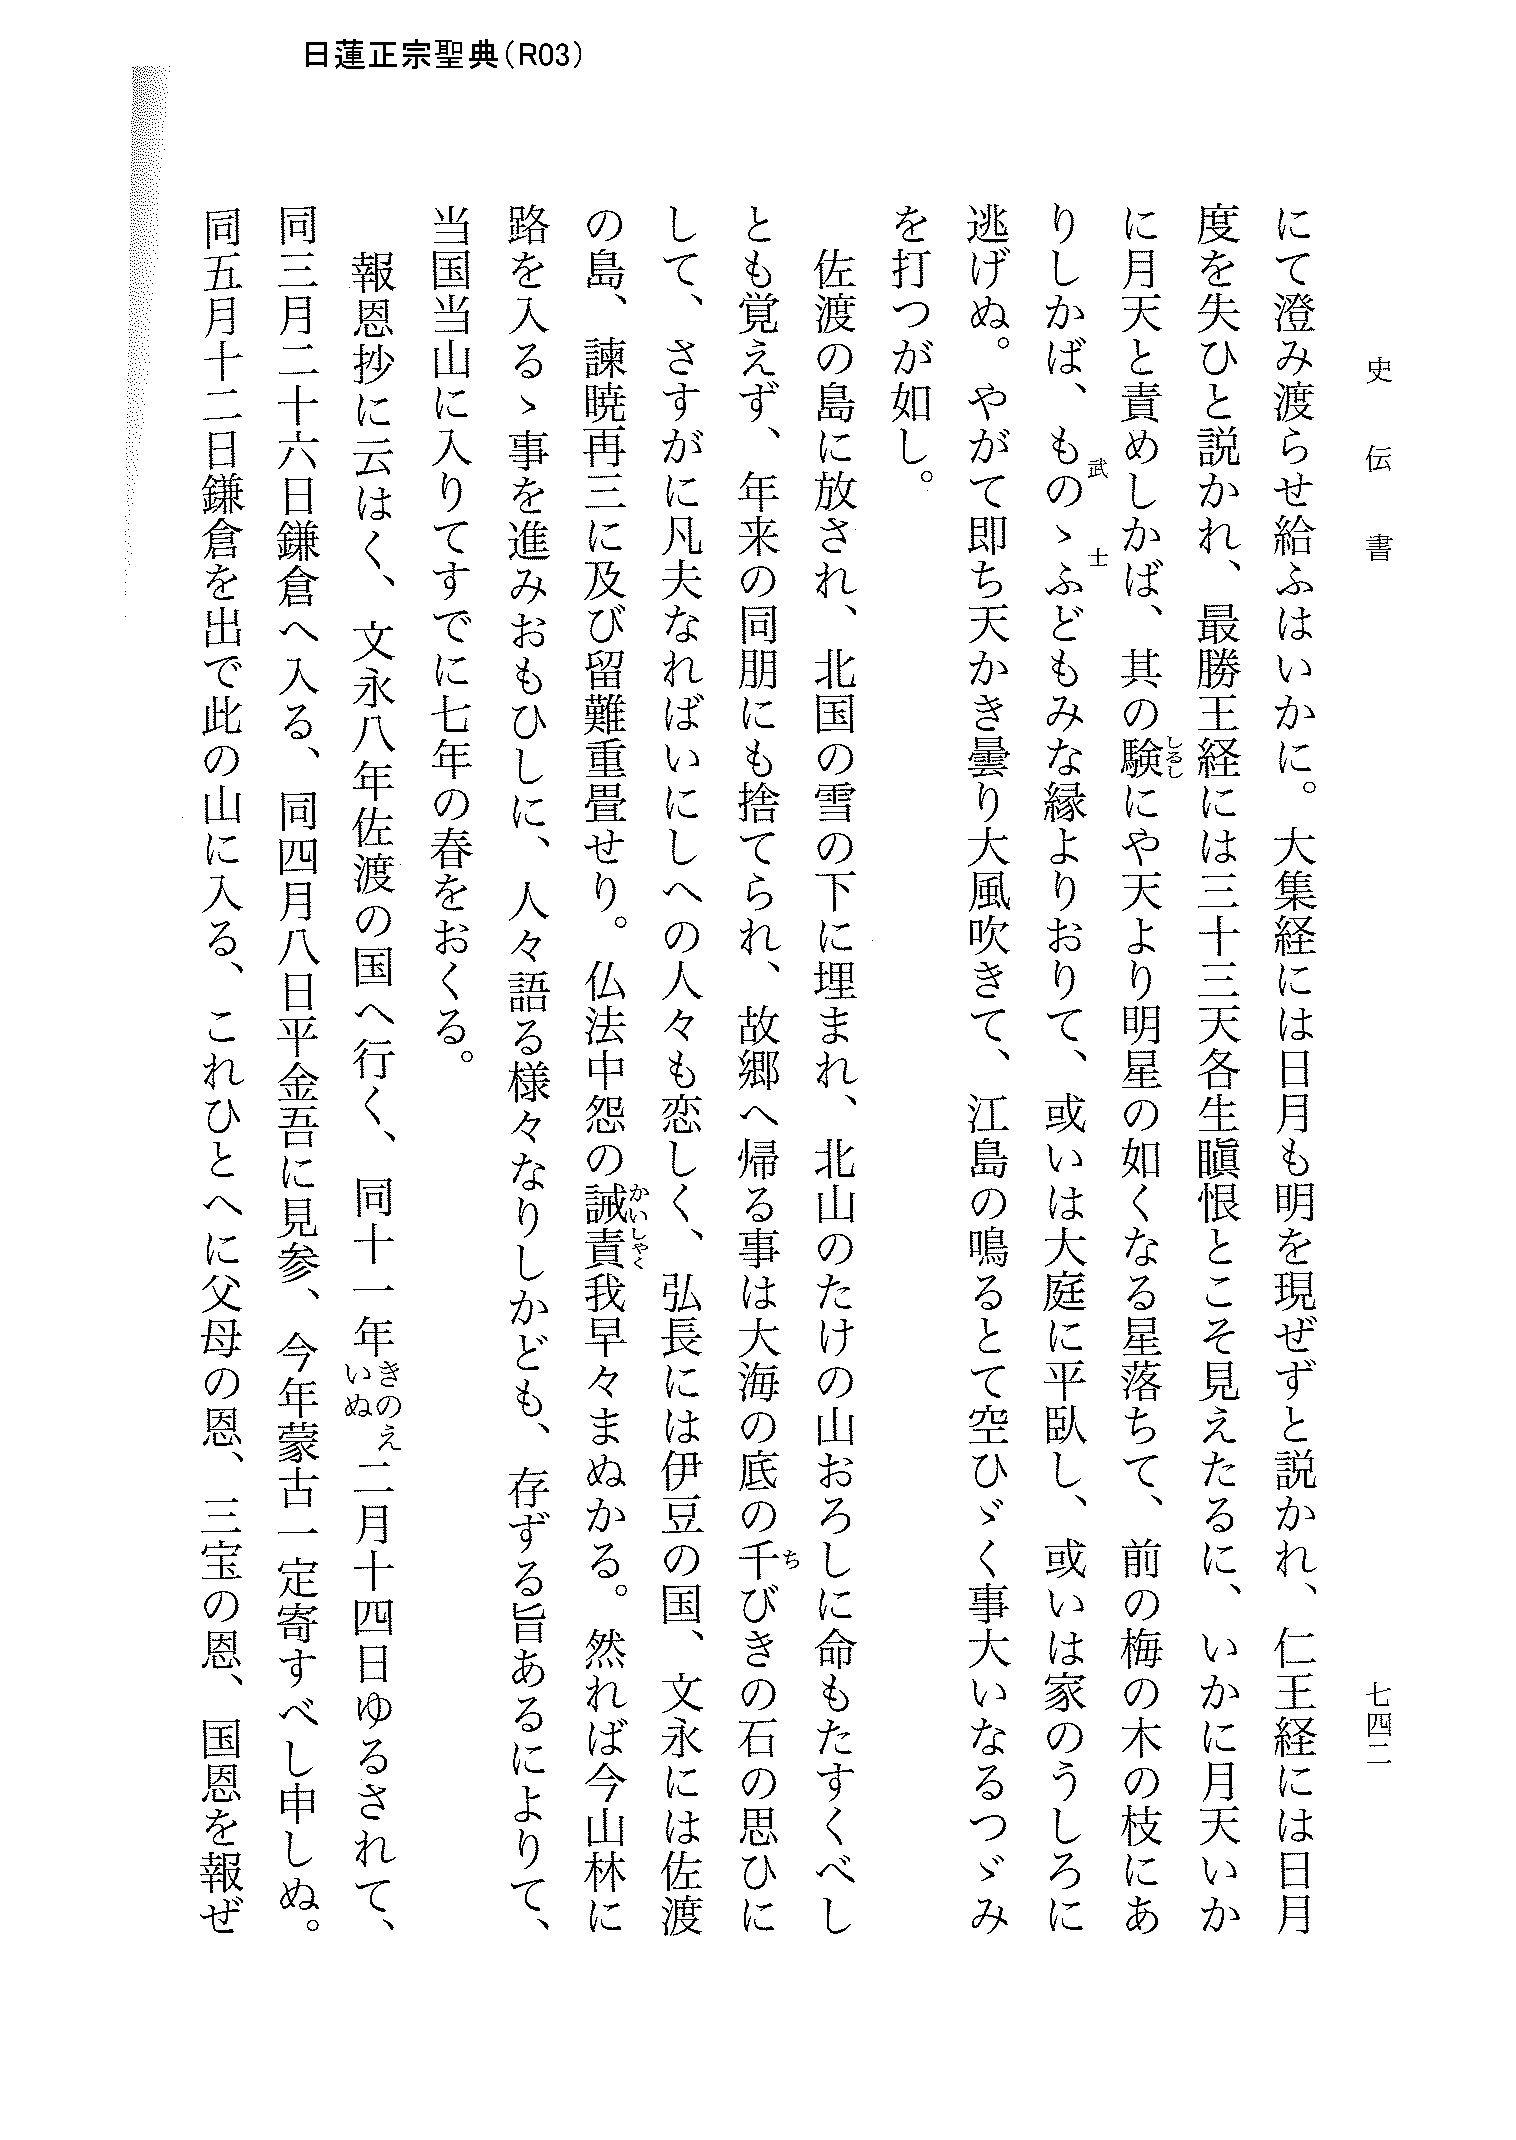 日蓮正宗聖典（R03）
史伝書
七四二
にて澄み渡らせ給ふはいかに。大集経には日月も明を現ぜずと説かれ、仁王経には日月
度を失ひと説かれ、最勝王経には三十三天各生瞋恨とこそ見えたるに、いかに月天いか
に月天と責めしかば、其の験にや天より明星の如くなる星落ちて、前の梅の木の枝にあ
しるし
りしかば、ものゝふどもみな縁よりおりて、或いは大庭に平臥し、或いは家のうしろに
武士
逃げぬ。やがて即ち天かき曇り大風吹きて、江島の鳴るとて空ひゞく事大いなるつゞみ
を打つが如し。
佐渡の島に放され、北国の雪の下に埋まれ、北山のたけの山おろしに命もたすくべし
とも覚えず、年来の同朋にも捨てられ、故郷へ帰る事は大海の底の千びきの石の思ひに
ち
して、さすがに凡夫なればいにしへの人々も恋しく、弘長には伊豆の国、文永には佐渡
の島、諫暁再三に及び留難重畳せり。仏法中怨の誡責我早々まぬかる。然れば今山林に
かいしゃく
路を入るゝ事を進みおもひしに、人々語る様々なりしかども、存ずる旨あるによりて、
当国当山に入りてすでに七年の春をおくる。
報恩抄に云はく、文永八年佐渡の国へ行く、同十一年きのえいぬ二月十四日ゆるされて、
同三月二十六日鎌倉へ入る、同四月八日平金吾に見参、今年蒙古一定寄すべし申しぬ。
同五月十二日鎌倉を出で此の山に入る、これひとへに父母の恩、三宝の恩、国恩を報ぜ